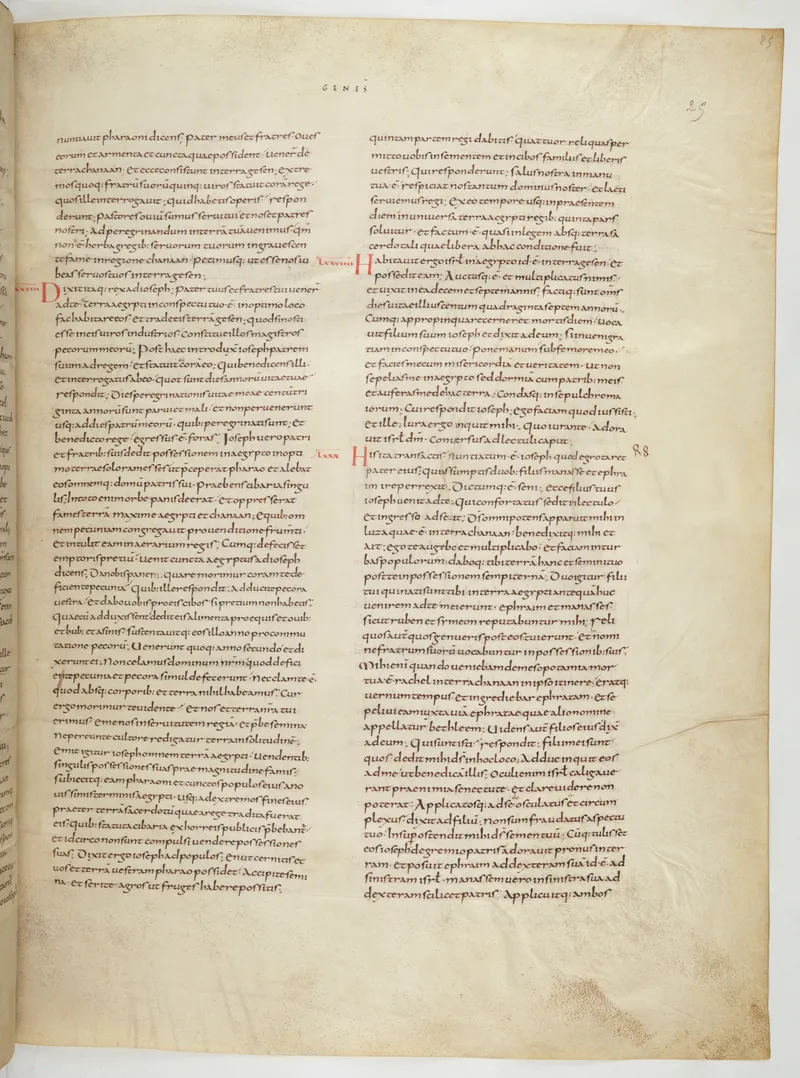 GENIS
85
25
nuntiauit pharaoni dicens; pater meus et fratres oues
eorum et armenta et cuncta quae possident uener̄ de
terra chanaan; et ecce consistunt in terra gesen; extre
mos quoq; fratrū suorū quinq; uiros statuit corā rege·
quos ille interrogauit; Quid habetis operis; respon
derunt; Pastores ouiū sumus serui tui et nos et patres
nostri; Ad peregrinandum in terrā tuā uenimus· qm̄
non ē herba gregib; seruorum tuorum ingrauescen
te fame in regione chanaan· petimusq; ut esse nos iu
beas seruos tuos in terra gesen;
Dixit itaq; rex ad ioseph; pater tuus et fratres tui uener̄
ad te· terra aegypti in conspectu tuo ē· in optimo loco
fac habitare eos· et trade eis terrā gesen; quod si nosti
esse in eis uiros industrios· Constitue illos magistros
pecorum meorū; Post haec introduxit ioseph patrem
suum ad regem· et statuit corā eo; Qui benedicens illi·
et interrogatus ab eo· quot sunt dies annorū uitae tuae·
respondit; Dies peregrinationis uitae meae centū tri
ginta annorū sunt parui et mali· et non peruenerunt
usq; ad dies patrū meorū· quib; peregrinati sunt; Et
benedicto rege· egressus ē foras; Ioseph uero patri
et fratrib; suis dedit possessionem in aegypto in opti
mo terrae solo ramesses ut praeceperat pharao· et alebat
eos omnemq; domū patris sui· praebens cibaria singu
lis; In toto enim orbe panis deerat· et oppresserat
fames terrā maxime aegypti et chanaan; e quib; om
nem pecuniam congregauit pro uenditione frumti·
et intulit eam in aerarium regis; Cumq; defecisset
emptoris pretiū· uenit cuncta aegyptus ad ioseph
dicens; Da nobis panem; quare morimur coram te de
ficiente pecunia; Quib; ille respondit; Adducite pecora
uestra· et dabo uobis pro eis cibos si pretium non habetis;
Quae cū adduxissent dedit eis alimenta pro equis et ouib;
et bub; et asinis; sustentauitq; eos illo anno pro commu
tatione pecorū; Venerunt quoq; anno secundo et di
xerunt ei; Non celamus dominum nrm̄ quod defici
ente pecunia et pecora simul defecerunt· Nec clam te ē·
quod absq; corporib; et terra nihil habeamus; Cur
ergo morimur te uidente· et nos et terra nrā tui
erimus; eme nos in seruitutem regiā· et pbe semina
ne pereunte cultore redigatur terra in solitudinē;
Emit igitur ioseph omnem terrā aegypti· uendentib;
singulis possessiones suas prae magnitudine famis;
subiecitq; eam pharaoni et cunctos populos eius a no
uissimis terminis aegypti· usq; ad extremos fines eius
praeter terrā sacerdotū quae a rege tradita fuerat
eis; Quib; et statuta cibaria ex horreis publicis pbebant·
et idcirco non sunt compulsi uendere possessiones
suas; Dixit ergo ioseph ad populos; En ut cernitis et
uos et terrā uestram pharao possidet; Accipite semi
na· et serite agros ut fruges habere possitis;
quintam partem regi dabitis· quattuor reliquas per
mitto uobis in sementem et in cibos famulis et liberis
uestris; Qui responderunt; salus nostra in manu
tua ē· respiciat nos tantum dominus noster· et laeti
seruiemus regi; Ex eo tempore usq; in praesentem
diem in uniuersa terra aegypti regib; quinta pars
soluitur· et factum ē· quasi in legem absq; terra sa
cerdotali quae libera ab hac conditione fuit;
Lxxviiii Habitauit ergo isrł in aegypto id ē· in terra gesen· et
possedit eam; Auctusq; ē· et multiplicatus nimis·
et uixit in ea decem et septem annis; factiq; sunt oms̄
dies uitae illius centum quadraginta septem annorū·
Cumq; appropinquare cerneret mortis diem· uoca
uit filium suum ioseph et dixit ad eum; si inueni gra
tiam in conspectu tuo· pone manum sub femore meo·
et facies mecum misericordiā et ueritatem· ut non
sepelias me in aegypto· sed dormiā cum patrib; meis·
et auferas me de hac terra; Condasq; in sepulchro ma
iorum; Cui respondit ioseph; ego faciam quod iussisti;
et ille; Iura ergo inquit mihi; Quo iurante· Adora
uit isrł dm̄· Conuersus ad lectuli caput;
Lxxx His ita transactis; nuntiatum ē· ioseph quod egrotaret
pater eius; qui sumptis duob; filiis manasse et ephra
im ire perrexit; Dictumq; ē seni; ecce filius tuus
ioseph uenit ad te; Qui confortatus sedit in lectulo·
et ingresso ad se ait; Ds̄ omnipotens apparuit mihi in
luza quae ē· in terra chanaan· benedixitq; mihi et
ait; ego te augebo et multiplicabo· et faciam in tur
bas populorum; daboq; tibi terrā hanc et semini tuo
post te in possessionem sempiternā; Duo igitur filii
tui qui nati sunt tibi in terra aegypti antequā huc
uenirem ad te mei erunt· ephraim et manasses
sicut ruben et symeon reputabuntur mihi; reli
quos aut̄ quos genueris post eos tui erunt· et nomi
ne fratrum suorū uocabuntur in possessionib; suis;
Mihi eni quando ueniebam de mesopotamia mor
tua ē· rachel in terra chanaan in ipso itinere; eratq;
uernum tempus· et ingrediebar ephratam· et se
peliui eam iuxta uiā ephratae quae alio nomine
appellatur bethleem; Uidens aut̄ filios eius dix̄
ad eum; Qui sunt isti; respondit; filii mei sunt
quos dedit mihi ds̄ in hoc loco; Adduc inquit eos
ad me ut benedicā illis; Oculi enim isrł caligaue
rant prae nimia senectute· et clare uidere non
poterat; Applicatosq; ad se osculatus et circum
plexus dixit ad filiū; non sum fraudatus aspectu
tuo· Insup ostendit mihi ds̄ semen tuū; Cūq; tulisset
eos ioseph de gremio patris adorauit pronus in ter
ram· et posuit ephraim ad dexteram suā id ē· ad
sinistram isrł· manassem uero in sinistra sua ad
dexteram scilicet patris; Applicuitq; ambos